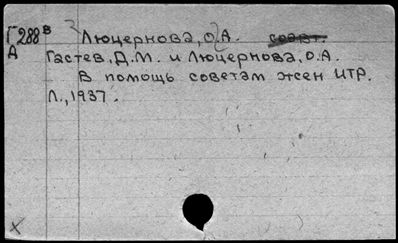 Г288в Люцернова, О.А. соавт.
А Гастев, Д.М. и Люцернова, О.А.
В помощь советам жен ИТР.
Л., 1937.
X